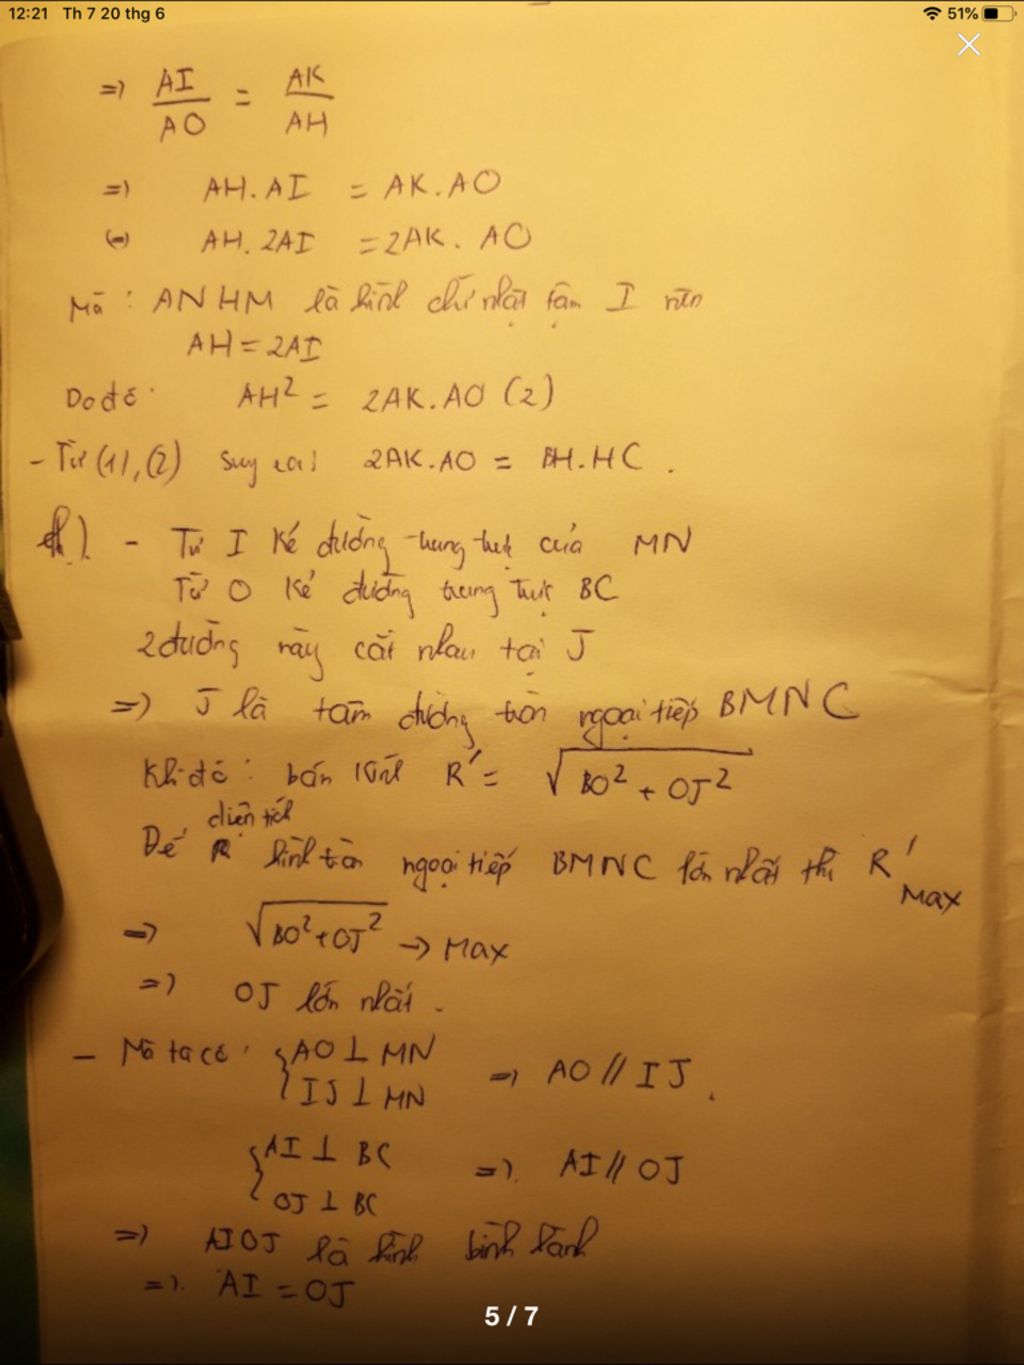 12:21 Th 7 20 thg 6 51%
=) AI/AO = AK/AH
=) AH.AI = AK.AO
(=) AH.2AI = 2AK.AO
Mà : ANHM là hình chữ nhật tâm I nên
AH = 2AI
Do đó: AH² = 2AK.AO (2)
- Từ (1), (2) suy ra: 2AK.AO = BH.HC.
- Từ I kẻ đường trung trực của MN
Từ O kẻ đường trung trực BC
2 đường này cắt nhau tại J
=) J là tâm đường tròn ngoại tiếp BMNC
Khi đó: bán kính R' = √(BO² + OJ²)
Để diện tích hình tròn ngoại tiếp BMNC lớn nhất thì R' Max
=) √(BO²+OJ²) → Max
=) OJ lớn nhất.
- Mà ta có: { AO ⊥ MN
IJ ⊥ MN =) AO // IJ.
{ AI ⊥ BC
OJ ⊥ BC =). AI // OJ
=) AIOJ là hình bình hành
=). AI = OJ
5 / 7